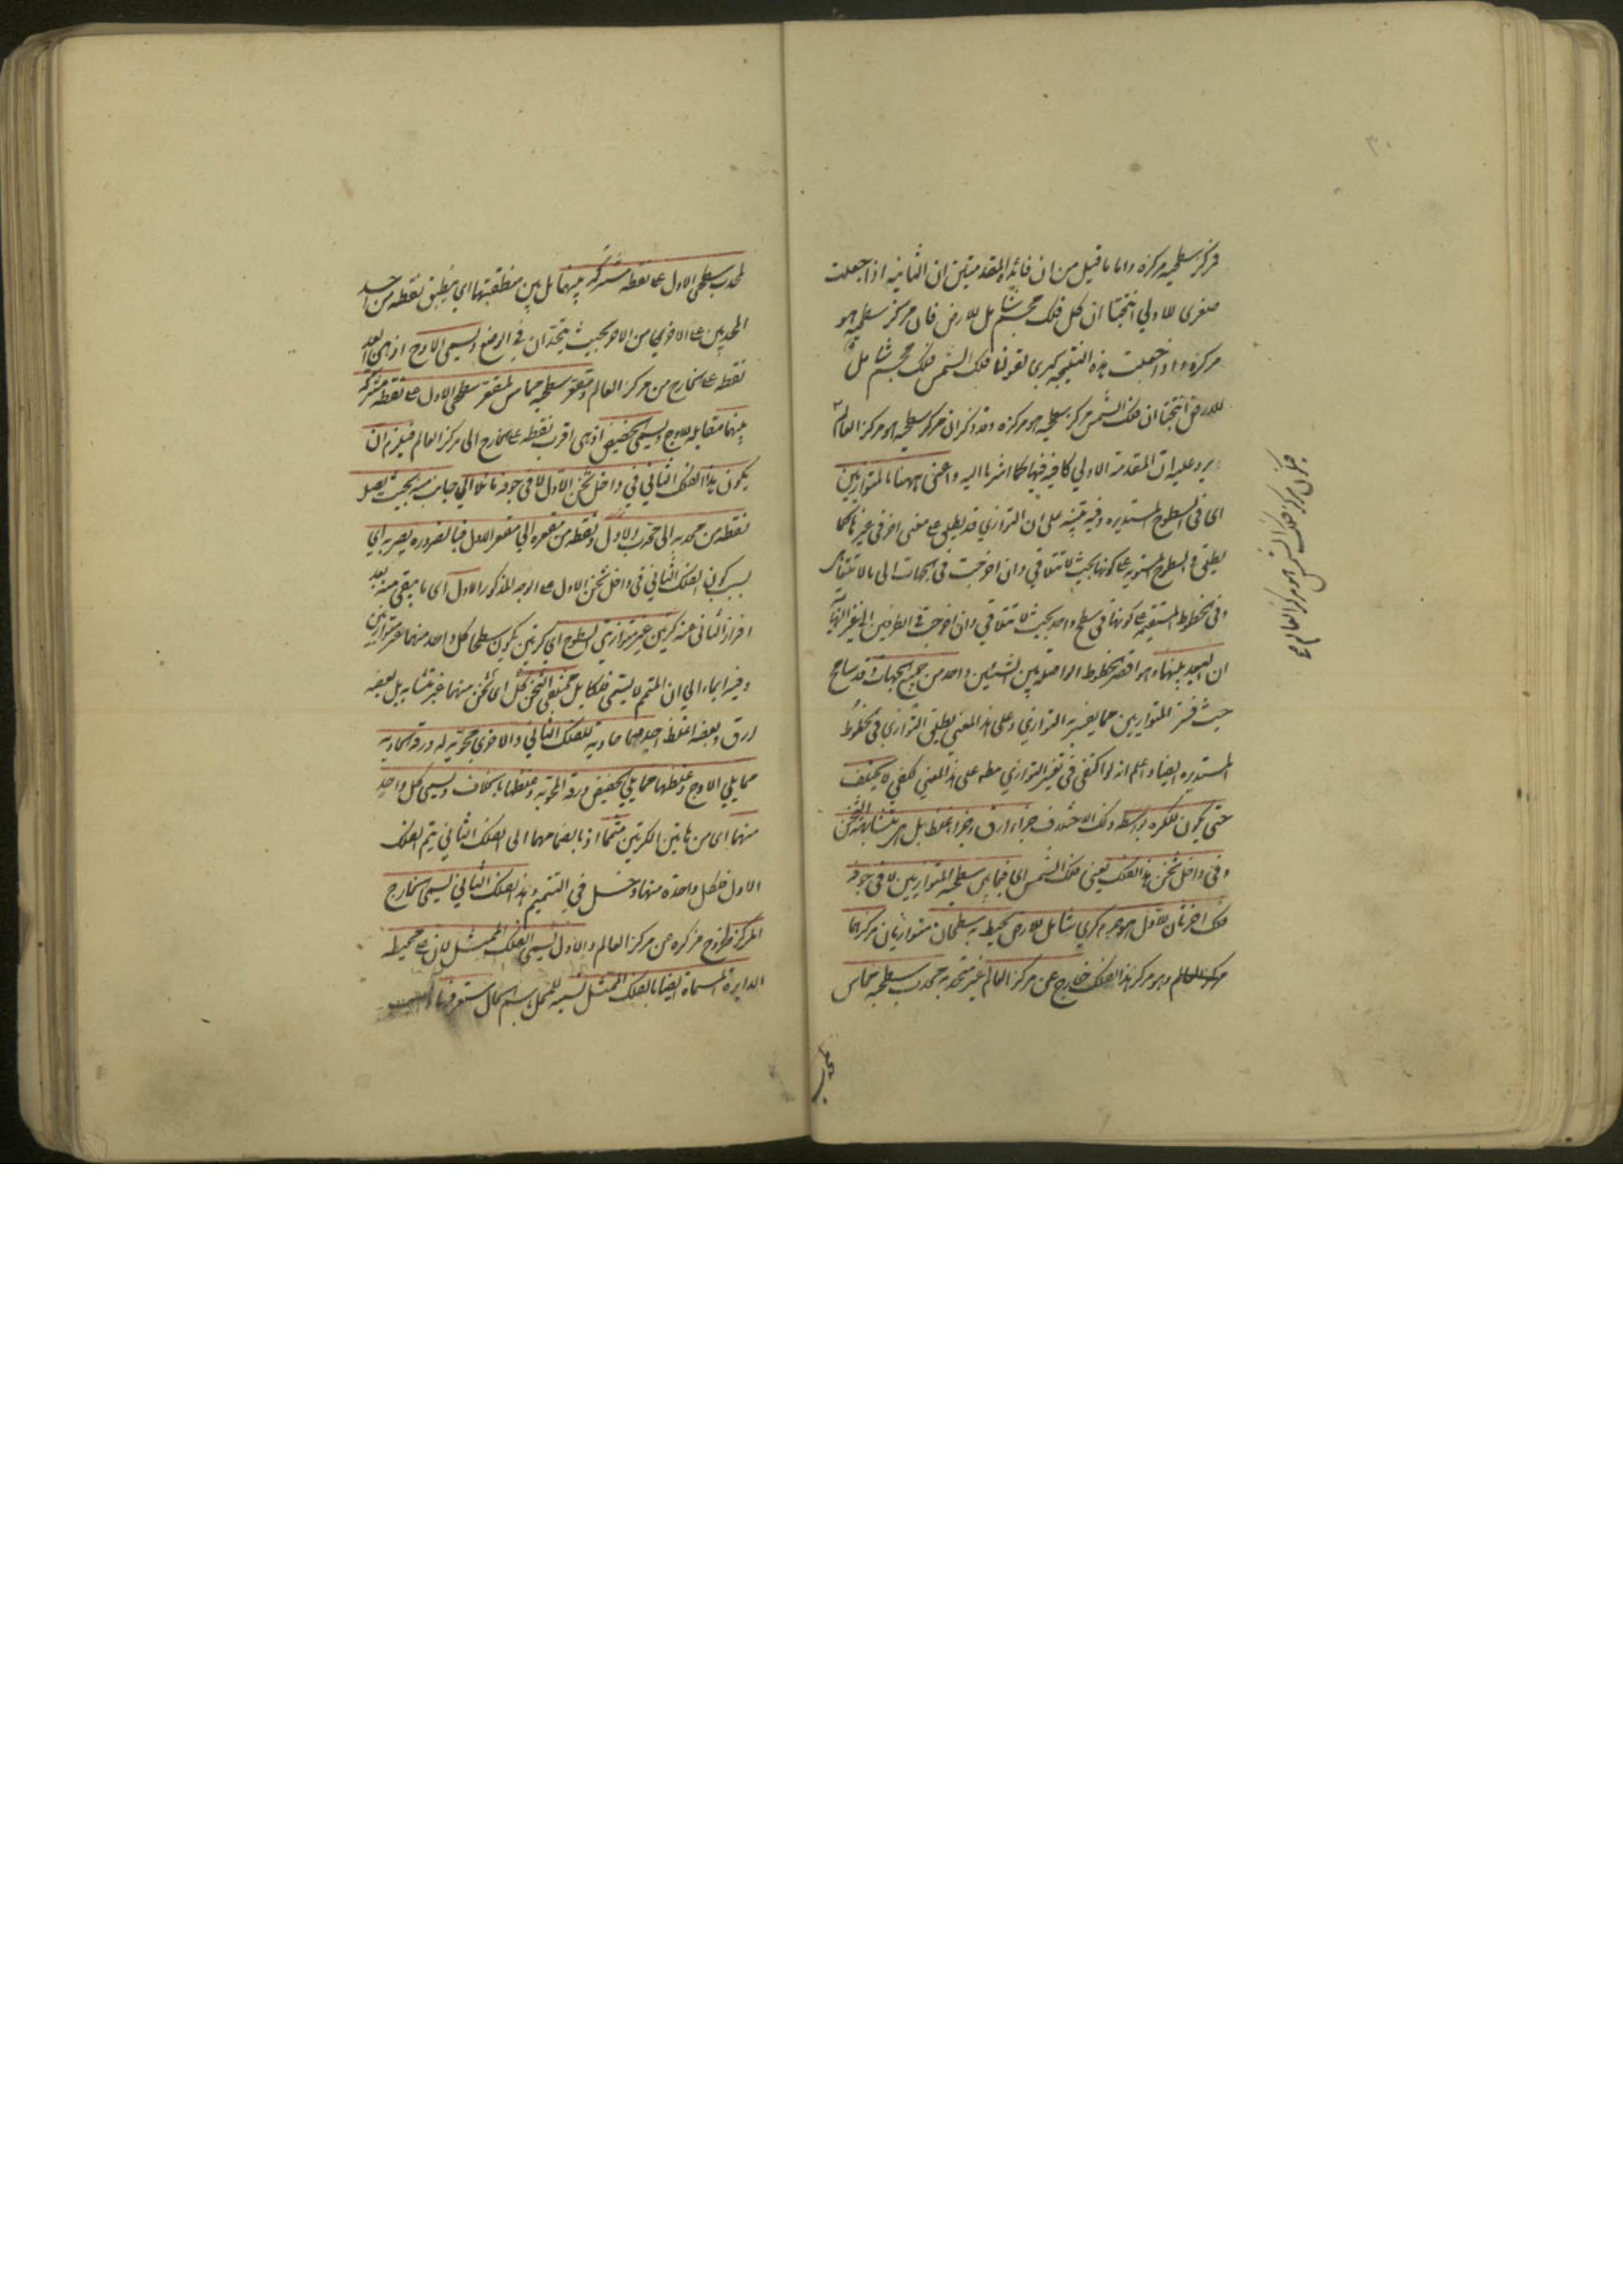 ٣٠
فمركز سطحيه مركزه واما ما قيل من ان فائدة المقدمتين ان الثانية اذا جعلت
صغرى للاولي انتجتا ان كل فلك مجسم شامل للارض فان مركز سطحيه هو
مركزه واذا جعلت هذه النتيجة كبرى لقولنا فلك الشمس فلك مجسم شامل
للارض انتجتا ان فلك الشمس مركز سطحيه هو مركزه وقد ذكر ان مركز سطحيه هو مركز العالم
يرد عليه ان المقدمة الاولي كافية فيها كما اشرنا اليه واعنى ههنا بالمتوازيين
اى فى السطوح المستديره وفيه تنبيه على ان التوازي قد يطلق على معنى اخر فى غيرها كما
يطلق فى السطوح المستويه على كونها بحيث لا تتلاقي وان اخرجت فى الجهات الى ما لا يتناهى
وفى الخطوط المستقيمه على كونها فى سطح واحد بحيث لا تتلاقي وان اخرجت فى الطرفين الى غير النهاية
ان البعد بينهما وهو اقصر الخطوط الواصله بين الشيئين واحد من جميع الجهات وقد سامح
حيث فسر المتوازيين بما يفسر به التوازي وعلى هذا المعنى يطلق التوازي فى الخطوط
المستديره ايضا واعلم انه لو اكتفى فى تفسير التوازي مطلقا على هذا المعنى لكفى لا يختلف
حتى يكون للكره بواسطه ذلك الاختلاف جزء ارق وجزء اغلظ بل هى متشابهة الثخن
وفى داخل ثخن هذا الفلك يعنى فلك الشمس اى فيما بين سطحيه المتوازيين لا فى جوفه
فلك اخر ثان للاول هو جرم كرى شامل للارض يحيط به سطحان متوازيان مركزهما
وهو مركز هذا الفلك خارج عن مركز العالم غير متحد به محدب سطحيه يماس
فمركز فلك الشمس هو مركز العالم
لمحدب
لمحدب سطحى الاول على نقطه مشتركه بينهما بل بين منطقتيهما اى ينطبق نقطه من احد
المحدبين على الاخرى من الاخر بحيث يتحدان فى الوضع ويسمى الاوج اذ هى ابعد
نقطه على الخارج من مركز العالم ومقعر سطحيه يماس لمقعر سطحى الاول على نقطه مشتركه
بينهما مقابله للاوج ويسمى الحضيض اذ هى اقرب نقطه على الخارج الى مركز العالم فيلزم ان
يكون هذا الفلك الثاني فى داخل ثخن الاول لا فى جوفه مائلا الي جانب منه بحيث يصل
نقطه من محدبه الى محدب الاول ونقطه من مقعره الي مقعر الاول فبالضروره يصير به اى
بسبب كون الفلك الثاني فى داخل ثخن الاول على الوجه المذكور الاول اى ما يبقى منه بعد
افراز الثانى عنه كرتين غير متوازيتى السطوح اى كرتين يكون سطحا كل واحد منهما غير متوازيين
وفيه ايماء الي ان المتمم لا يسمى فلكا بل مختلفى الثخن كل اى ثخن منهما غير متشابه بل بعضه
ارق وبعضه اغلظ احديهما حاويه للفلك الثاني والاخرى محويه له ورقه الحاويه
مما يلي الاوج وغلظها مما يلي الحضيض ورقة المحويه وغلظها بالخلاف ويسمى كل واحد
منهما اى من هاتين الكرتين متمما اذ بانضمامهما الى الفلك الثاني يتم الفلك
الاول فلكل واحدة منهما دخل فى التتميم وهذا الفلك الثاني يسمى الخارج
المركز لخروج مركزه عن مركز العالم والاول يسمى الفلك الممثل لان على محيطه
الدايرة المسماه ايضا بالفلك الممثل تسميه للمحل باسم الحال ستعرفها